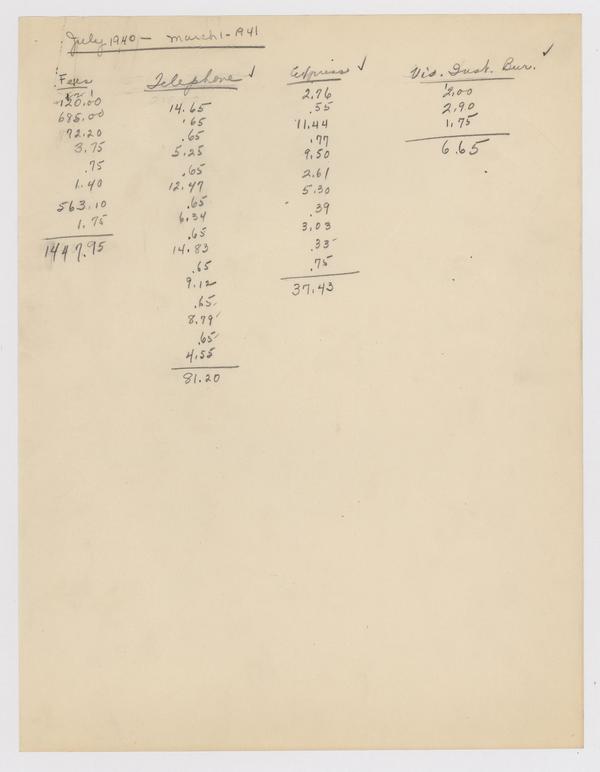 July 1940 — March 1 - 1941
Fees
120.00
685.00
72.20
3.75
.75
1.40
563.10
1.75
1447.95
Telephone ✓
14.65
.65
.65
5.25
.65
12.47
.65
6.34
.65
14.83
.65
9.12
.65
8.79
.65
4.55
81.20
Express ✓
2.76
.55
11.44
.77
9.50
2.61
5.30
.39
3.03
.33
.75
37.43
Vis. Inst. Bur. ✓
2.00
2.90
1.75
6.65